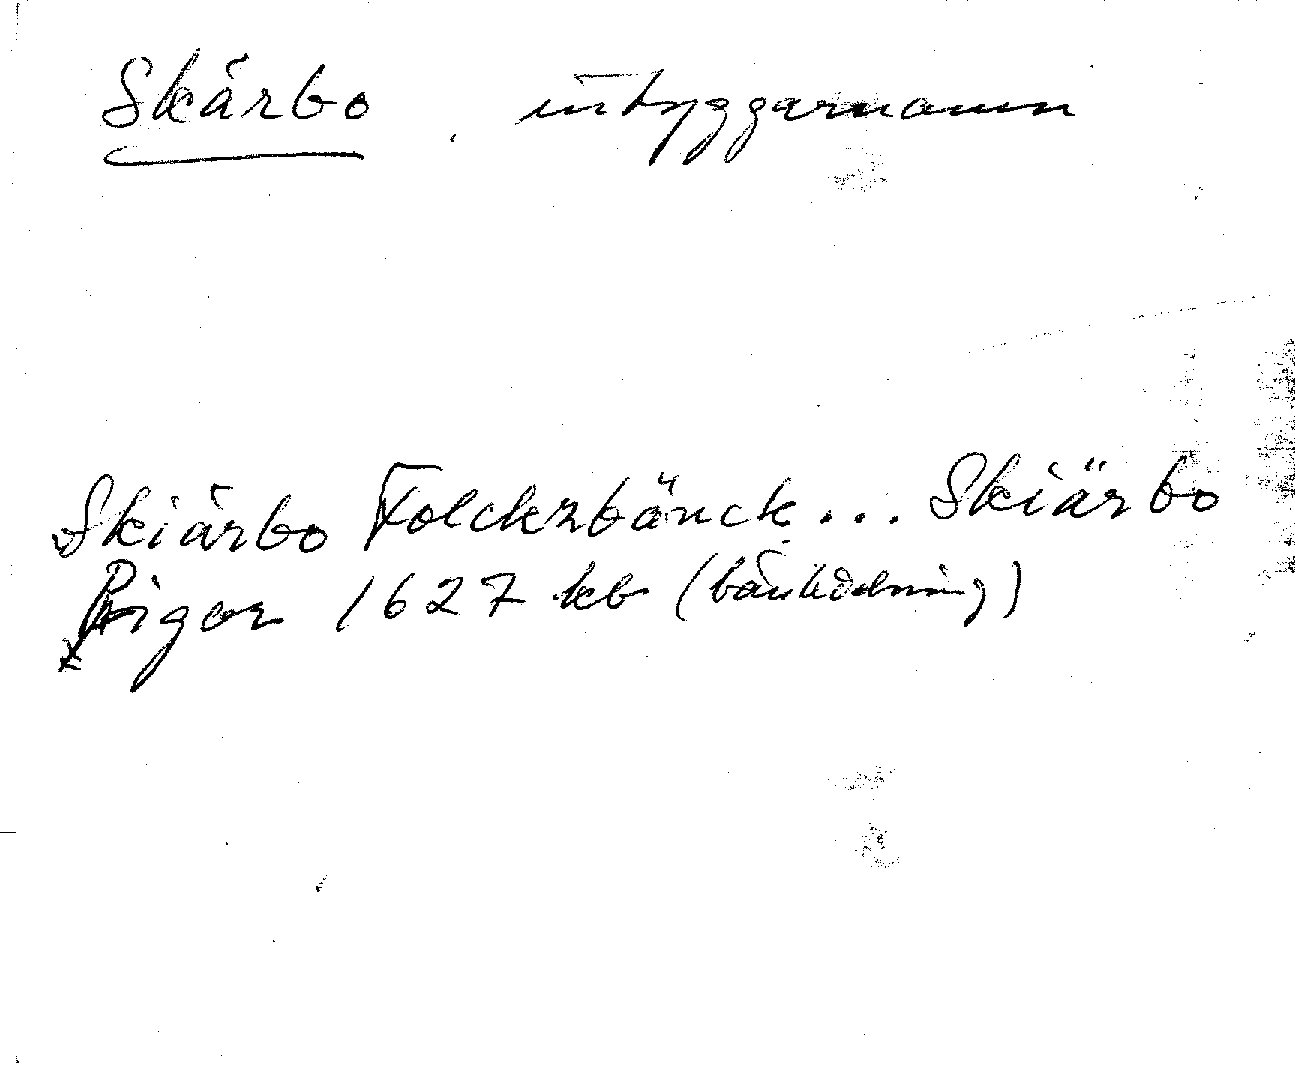 Skärbo inbyggarnamn
Skiärbo Folckzbänck... Skiärbo
Pigor 1627 kb (bänkdelning)